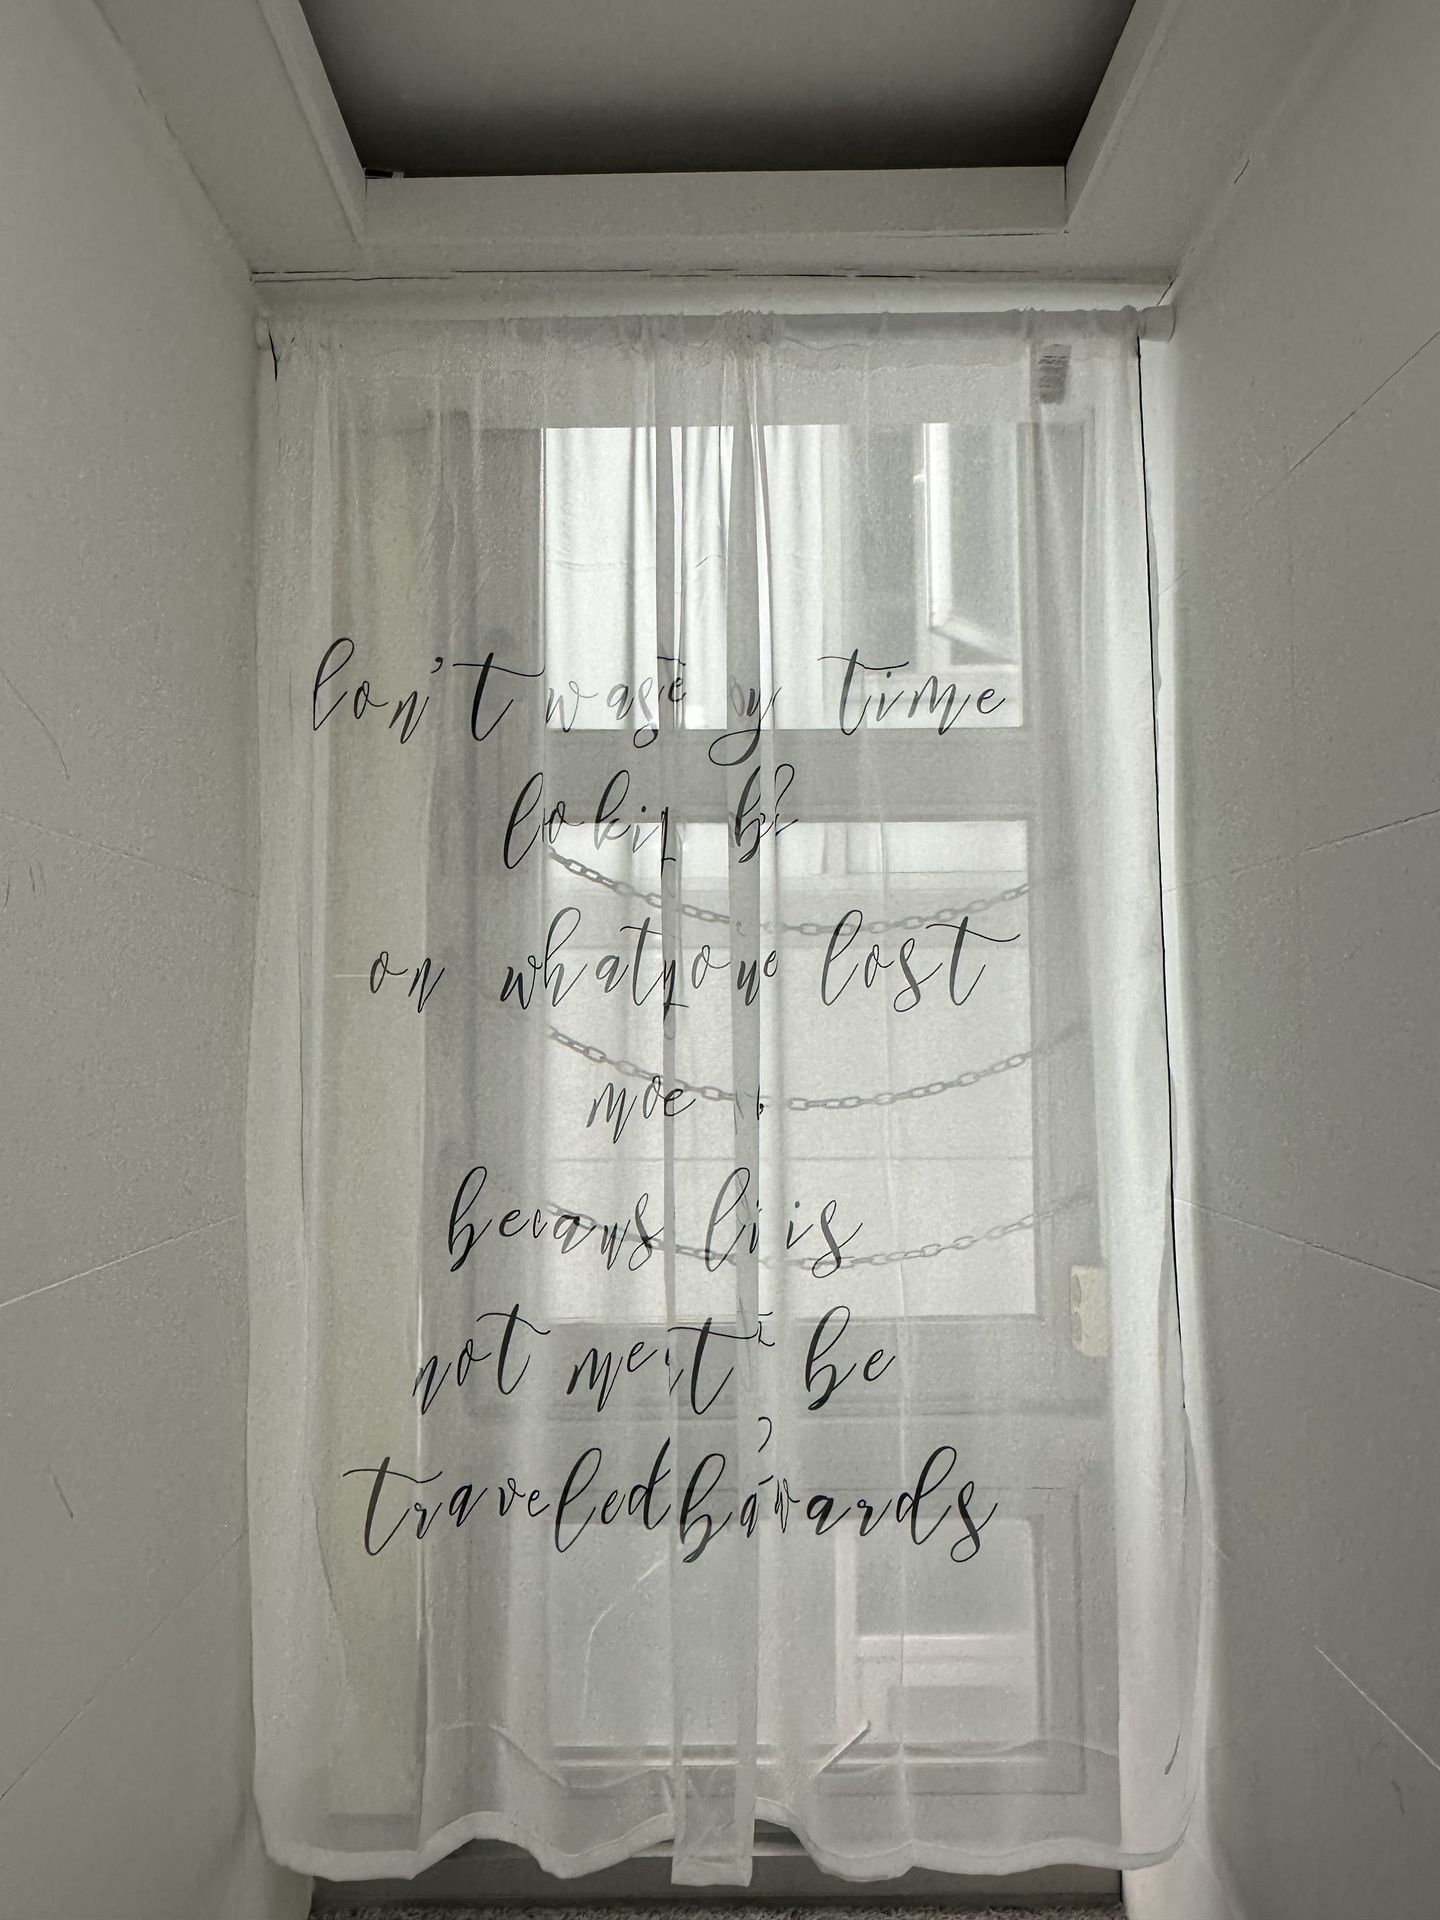 Don't waste y time
lokig b
on what you lost
moe
becaus li is
not met t be
traveled bawards